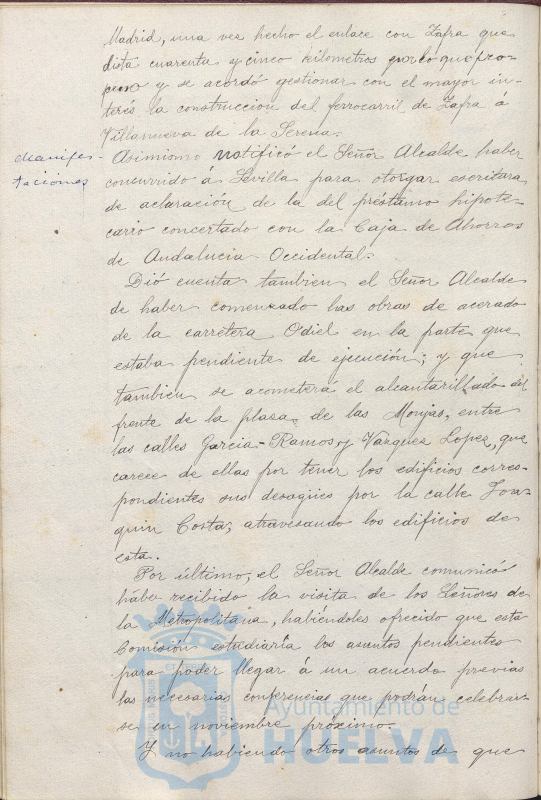 Madrid, una vez hecho el enlace con Zafra que
dista cuarenta y cinco kilometros por lo que pro-
puso y se acordó gestionar con el mayor in-
terés la construccion del ferrocarril de Zafra á
Villanueva de la Serena.
Manifes-
taciones
Asimismo notificó el Señor Alcalde haber
concurrido á Sevilla para otorgar escritura
de aclaración de la del préstamo hipote-
cario concertado con la Caja de Ahorros
de Andalucia Occidental.
Dió cuenta tambien el Señor Alcalde
de haber comenzado las obras de acerado
de la carretera Odiel en la parte que
estaba pendiente de ejecución; y que
tambien se acometerá el alcantarillado del
frente de la plaza de las Monjas, entre
las calles Garcia-Ramos y Vazquez Lopez, que
carece de ellas por tener los edificios corres-
pondientes sus desagües por la calle Joa-
quin Costa, atravesando los edificios de
esta.
Por último, el Señor Alcalde comunicó
haber recibido la visita de los Señores de
la Metropolitana, habiéndoles ofrecido que esta
Comisión estudiaría los asuntos pendientes
para poder llegar á un acuerdo previas
las necesarias conferencias que podrán celebrar-
se en noviembre próximo.
Y no habiendo otros asuntos de que
Ayuntamiento de
HUELVA